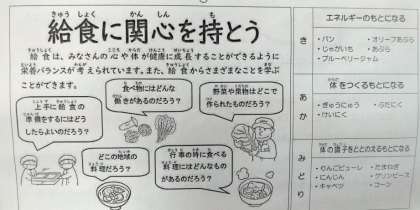 給食に関心を持とう
給食は、みなさんの心や体が健康に成長することができるように
栄養バランスが考えられています。また、給食からさまざまなことを学ぶ
ことができます。
上手に給食の
準備をするにはどう
したらよいのだろう?
食べ物にはどんな
働きがあるのだろう?
野菜や果物はどこで
作られたものだろう?
どこの地域の
料理だろう?
行事の時に食べる
料理にはどんなもの
があるのだろう?
き
エネルギーのもとになる
・パン ・オリーブあぶら
・じゃがいも ・あぶら
・ブルーベリージャム
あか
体をつくるもとになる
・ぎゅうにゅう ・ぶたにく
・けいにく
みどり
体の調子をととのえるもとになる
・りんごピューレ ・たまねぎ
・にんじん ・グリンピース
・キャベツ ・コーン